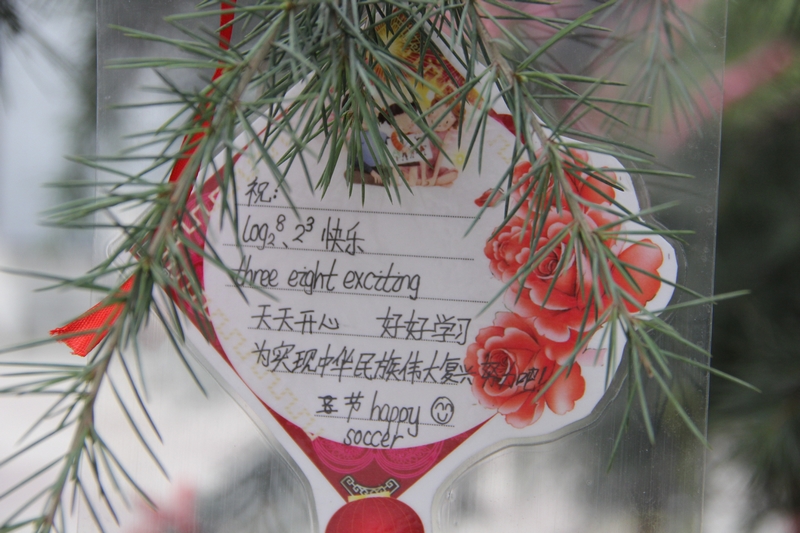 祝：
log₂8、2³ 快乐
three eight exciting
天天开心 好好学习
为实现中华民族伟大复兴努力吧！
节 happy ☺
soccer